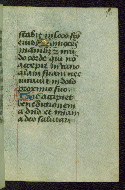 stabit in loco san
cto eius Innocens
manibus et mu
do corde qui no
accepit in uano
aiam suam nec
iurauit in dolo
proximo suo
Hic accipiet
benedictionem
a dno et misam
a deo salutari